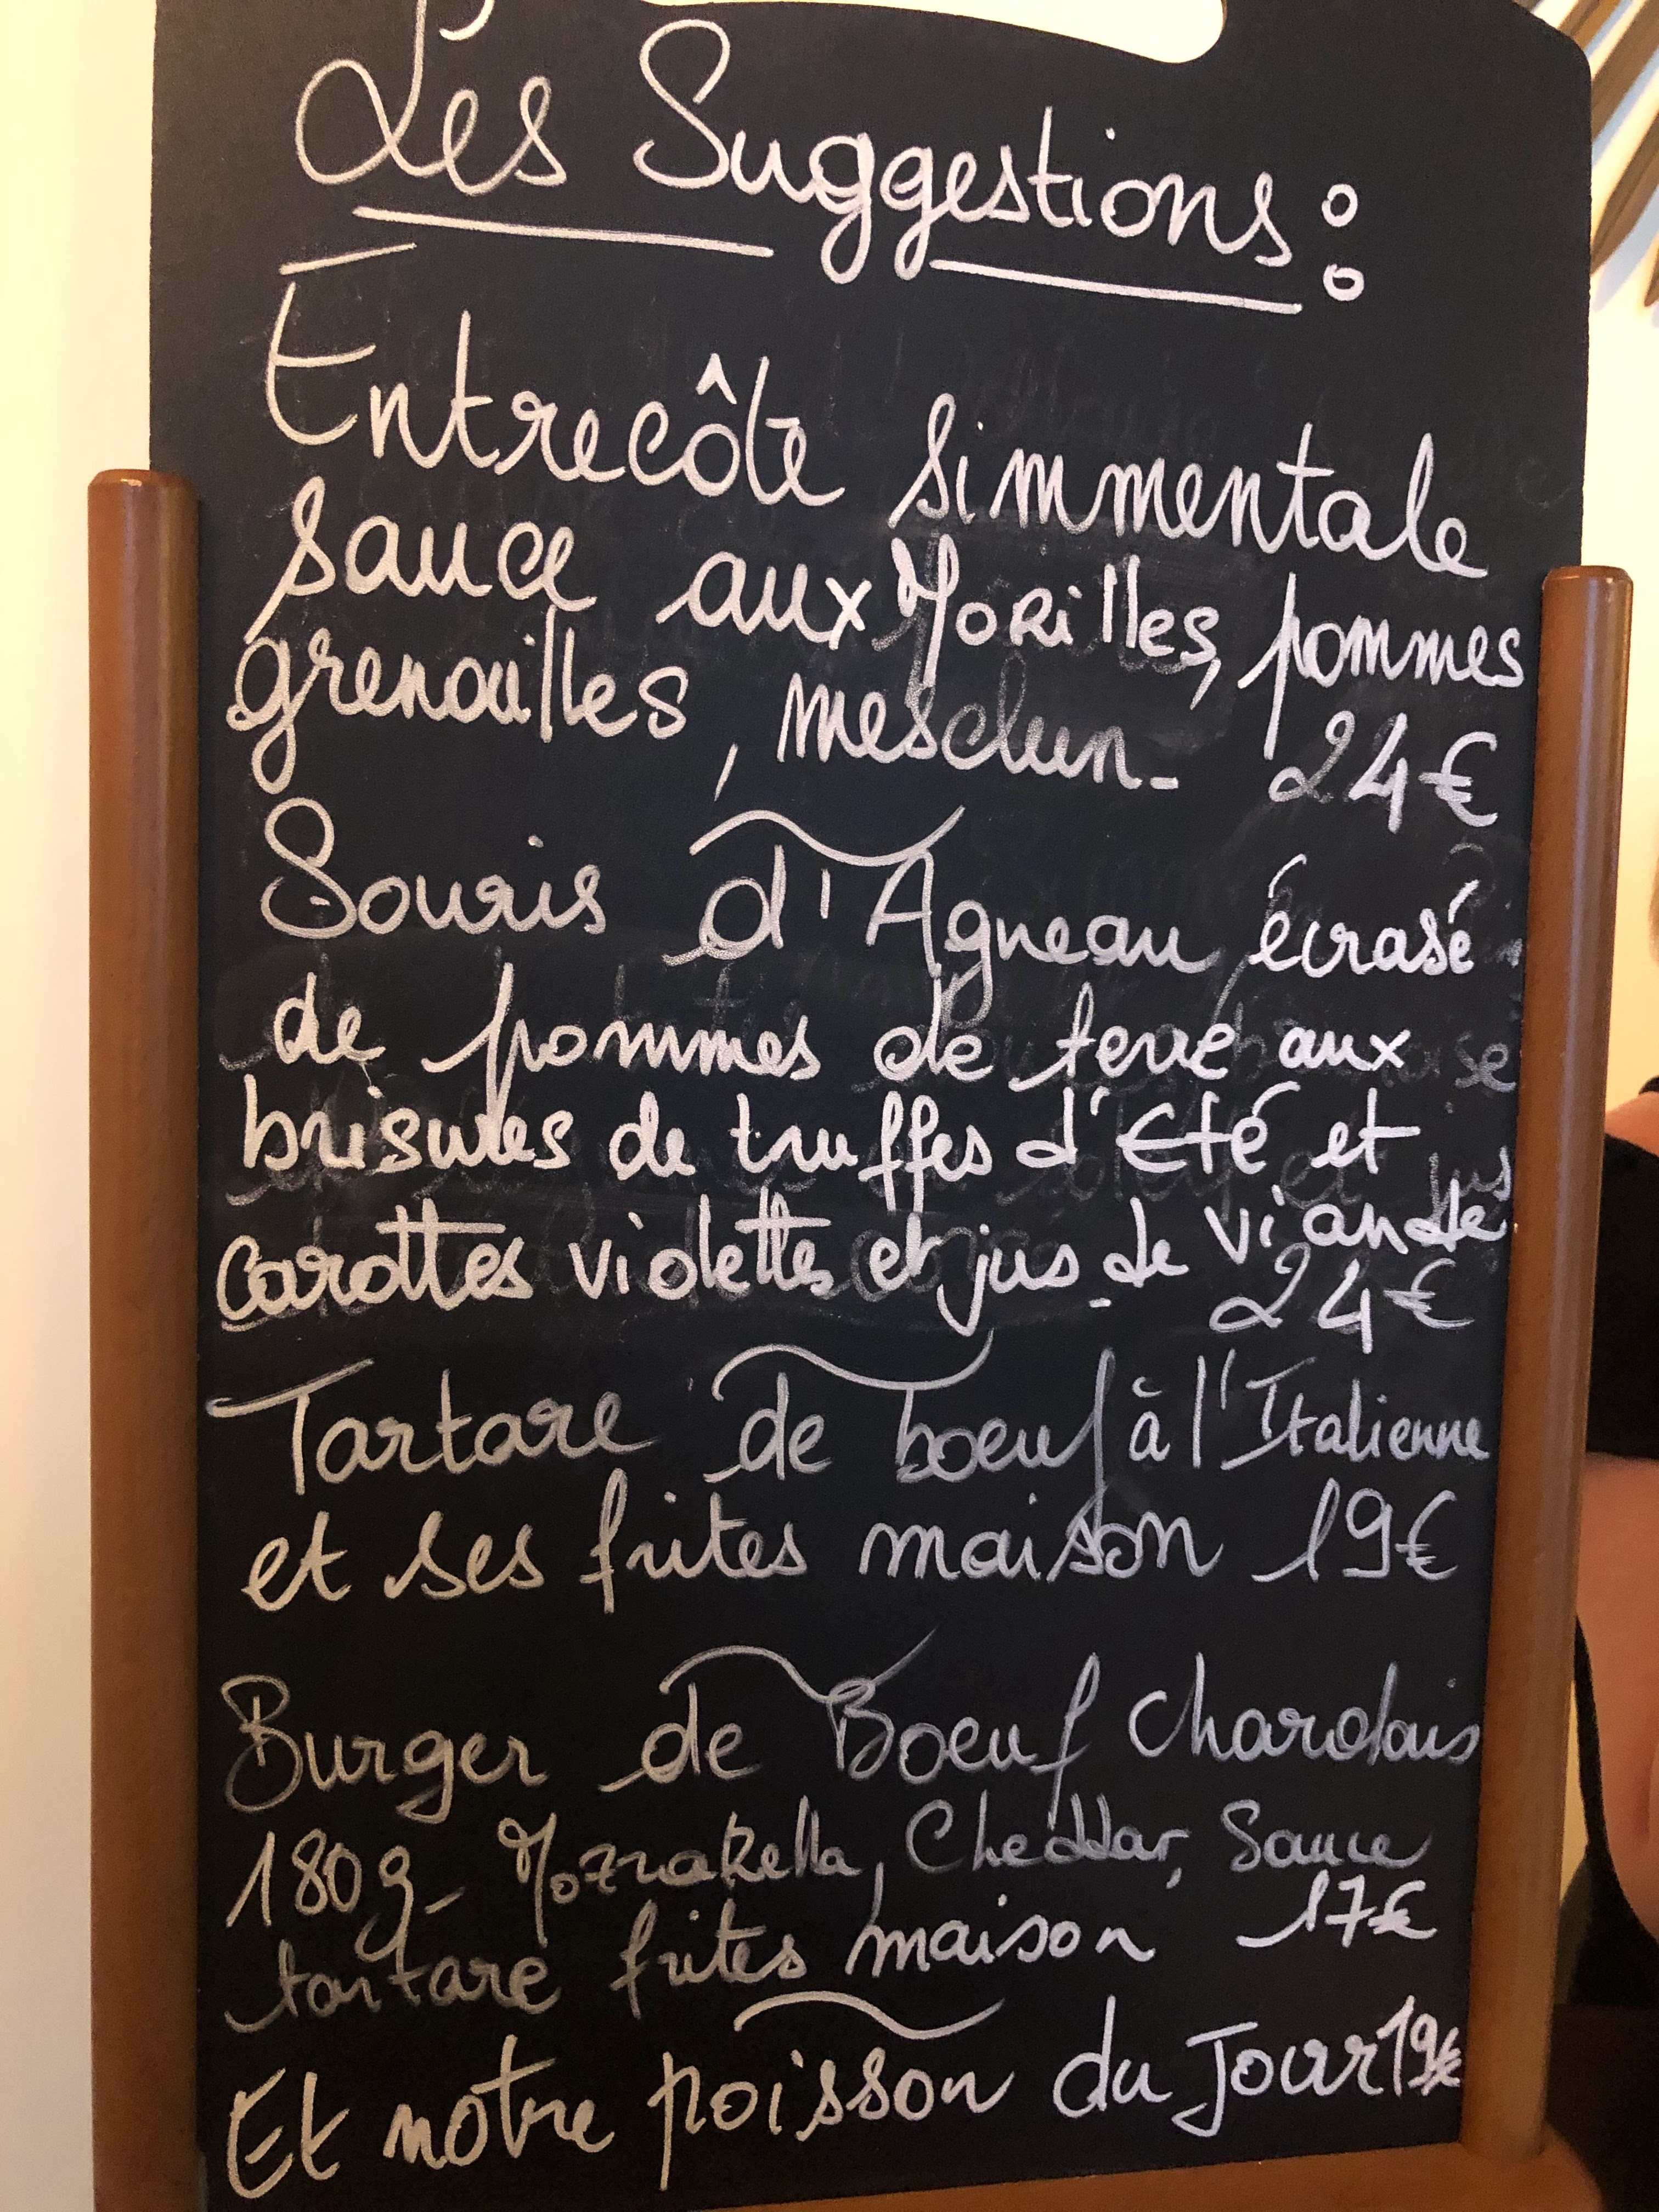 Les Suggestions :
Entrecôte simmentale
sauce aux Morilles, pommes
grenailles, mesclun. 24€
Souris d'Agneau, écrasé
de pommes de terre aux
brisures de truffes d'Eté et
carottes violettes et jus de viande
24€
Tartare de boeuf à l'Italienne
et ses frites maison 19€
Burger de Boeuf charolais
180g - Mozzarella, Cheddar, Sauce
tartare frites maison 17€
Et notre poisson du Jour 19€